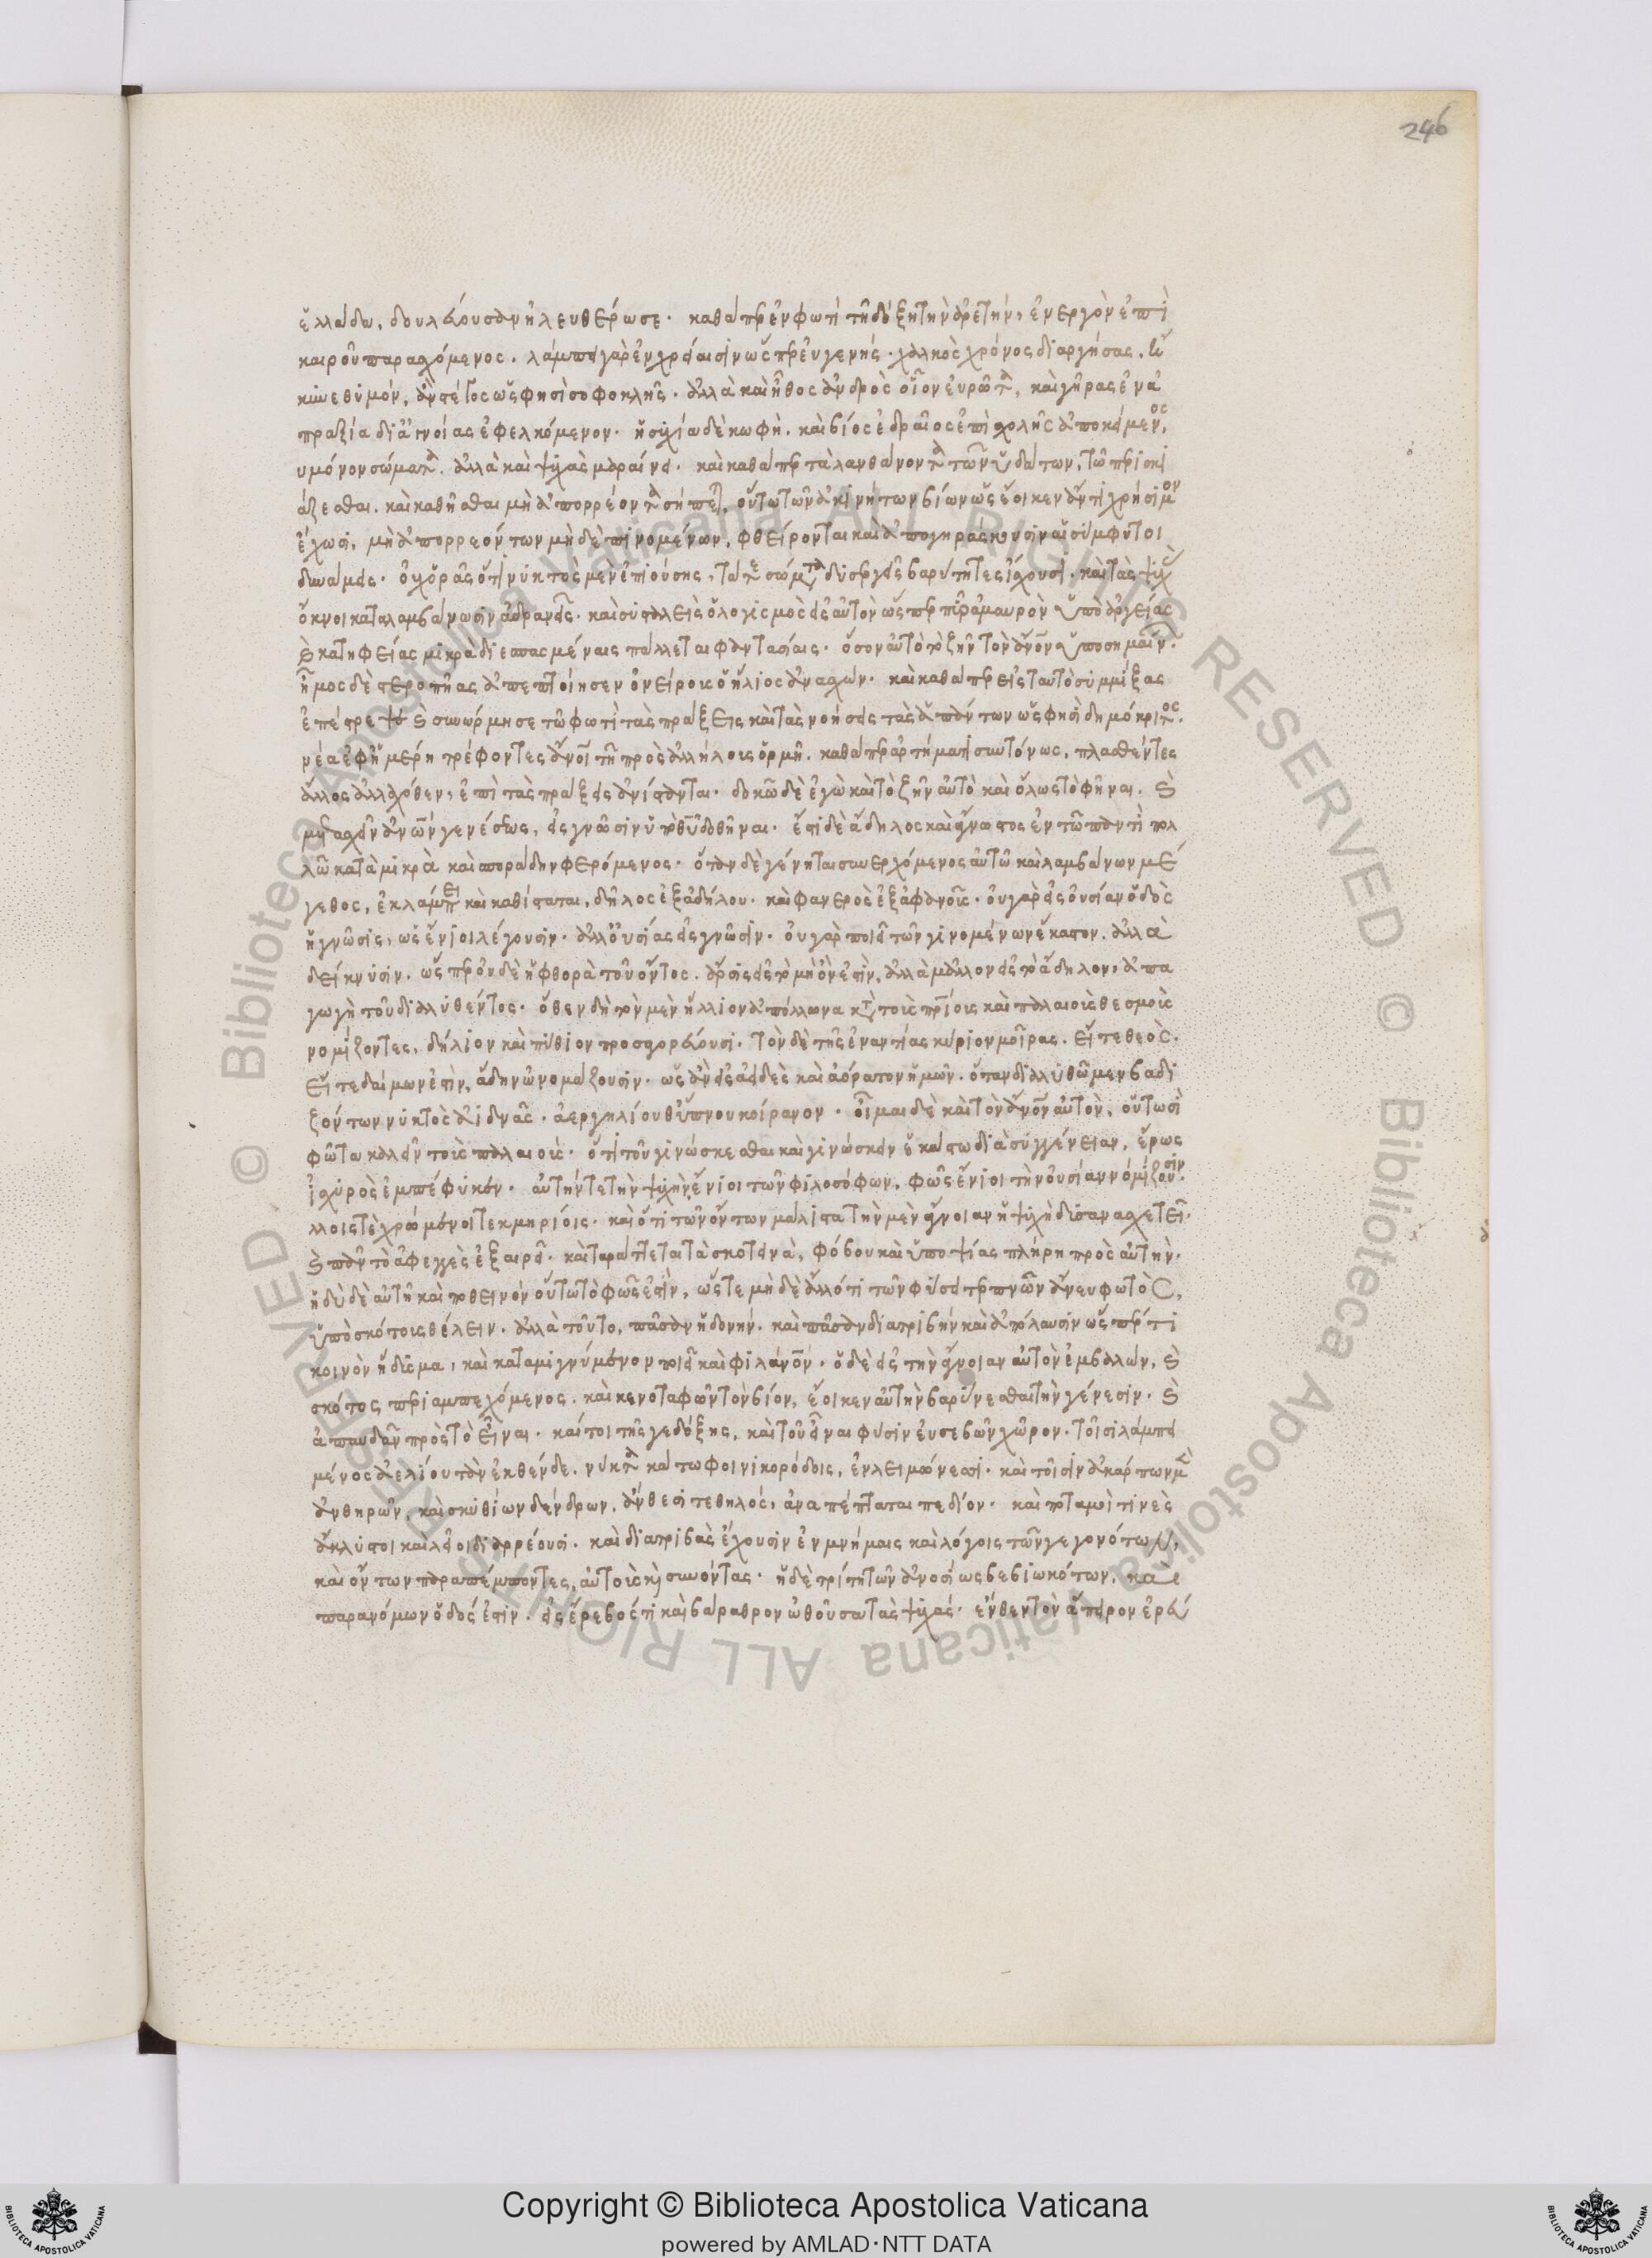 246
ἑλλάδα, δουλεύουσαν ἠλευθέρωσε. καθάπερ ἐν φωτὶ τῇ δόξῃ τὴν ἀρετὴν, ἐνεργὸν ἐπὶ
καιροῦ παρασχόμενος. λάμπει γὰρ ἐν χρείαισιν ὥσπερ εὐγενὴς χαλκὸς χρόνος δι ἀργήσας.
ἀλλὰ καὶ ἦθος ἀνδρὸς οἷον εὐρῶτα, καὶ γῆρας ἐν ἀ
πραξία δι ἀγνοίας ἐφελκόμενον. ἡσυχία δὲ κωφὴ. καὶ βίος ἑδραῖος ἐπὶ σχολῆς ἀποκείμενος,
υ μόνον σώματα. ἀλλὰ καὶ ψυχὰς μαραίνει. καὶ καθάπερ τὰ λανθάνοντα τῶν ὑδάτων, τῷ περισκι
άζεσθαι. καὶ καθῆσθαι μὴ ἀπορρέοντα σήπεται, οὕτω τῶν ἀκινήτων βίων ὡς ἔοικεν ἄν τι χρήσιμον
ἔχωσι, μὴ ἀπορρεόντων μὴ δὲ πινομένων, φθείρονται καὶ ἀπογηράσκουσιν αἱ σύμφυτοι
δυνάμεις. οὐχ ὁρᾶς ὅτι νυκτὸς μὲν ἐπιούσης, τά τε σώματα δυσεργεῖς βαρύτητες ἴσχουσι. καὶ τὰς ψυχὰς
ὄκνοι καταλαμβάνωσιν ἀδρανεῖς. καὶ συσταλεὶς ὁ λογισμὸς εἰς αὐτὸν ὥσπερ πῦρ ἀμαυρὸν ὑπὸ ἀργείας
καὶ κατηφείας μικρὰ διεσπασμέναις πάλλεται φαντασίαις. ὅσον αὐτὸ τὸ ζῆν τὸν ἄνθρωπον ὑποσημαίνων.
ἦμος δὲ στεροπῆας ἀπεπτοίησεν ὀνείροις ὁ ἥλιος ἀνασχών. καὶ καθάπερ εἰς ταυτὸ συμμίξας
ἐπέστρεψε καὶ συνώρμησε τῷ φωτὶ τὰς πράξεις καὶ τὰς νοήσεις τὰς ἁπάντων ὥς φησι δημόκριτος.
νέα ἐφ ἡμέρῃ τρέφοντες ἄνθρωποι τῇ πρὸς ἀλλήλους ὁρμῇ. καθάπερ ἀρτήματι συντόνως, πλασθέντες
ἄλλος ἀλλαχόθεν, ἐπὶ τὰς πράξεις ἀνίστανται. δοκῶ δὲ ἐγὼ καὶ τὸ ζῆν αὐτὸ καὶ ὅλως τὸ φῆναι. καὶ
μετασχεῖν ἀνθρώπων γενέσεως, εἰς γνῶσιν ὑπὸ θεοῦ δοθῆναι. ἔστι δὲ ἄδηλος καὶ ἄγνωστος ἐν τῷ παντὶ πολ
λῷ κατὰ μικρὰ καὶ σποράδην φερόμενος. ὅταν δὲ γένηται συνερχόμενος αὐτῷ καὶ λαμβάνων μέ
γεθος, ἐκλάμπει καὶ καθίσταται, δῆλος ἐξ ἀδήλου. καὶ φανερὸς ἐξ ἀφανοῦς. οὐ γὰρ εἰς οὐσίαν ὁδὸς
ἡ γνῶσις, ὡς ἔνιοι λέγουσιν. ἀλλ οὐσίας εἰς γνῶσιν. οὐ γὰρ ποιεῖ τῶν γινομένων ἕκαστον. ἀλλὰ
δείκνυσιν. ὥσπερ οὐδὲ ἡ φθορὰ τοῦ ὄντος. ἄρσις εἰς τὸ μὴ ὄν ἐστιν, ἀλλὰ μᾶλλον εἰς τὸ ἄδηλον, ἀπα
γωγὴ τοῦ διαλυθέντος. ὅθεν δὴ τὸν μὲν ἥλιον ἀπόλλωνα κατὰ τοὺς πατρίους καὶ παλαιοὺς θεσμοὺς
νομίζοντες, δήλιον καὶ πύθιον προσαγορεύουσι. τὸν δὲ τῆς ἐναντίας κύριον μοίρας. εἴτε θεὸς.
εἴτε δαίμων ἐστὶν, ἅδην ὠνομάζουσιν. ὡς ἂν εἰς ἀειδὲς καὶ ἀόρατον ἡμῶν. ὅταν διαλυθῶμεν βαδι
ζόντων νυκτὸς ἀϊδνᾶς. ἀεργηλίου θ ὕπνου κοίρανον. οἶμαι δὲ καὶ τὸν ἄνθρωπον αὐτὸν, οὕτωσὶ
φῶτα καλεῖν τοὺς παλαιοὺς. ὅτι τοῦ γινώσκεσθαι καὶ γινώσκειν ἑκάστῳ διὰ συγγένειαν, ἔρως
ἰσχυρὸς ἐμπέφυκεν. αὐτήν τε τὴν ψυχὴν ἔνιοι τῶν φιλοσόφων, φῶς ἔνιοι τὴν οὐσίαν νομίζουσιν.
λλοις τε χρώμενοι τεκμηρίοις. καὶ ὅτι τῶν ὄντων μάλιστα τὴν μὲν ἄγνοιαν ἡ ψυχὴ δυσανασχετεῖ.
καὶ πᾶν τὸ ἀφεγγὲς ἐξαιρεῖ. καὶ ταράττεται τὰ σκοτεινὰ, φόβου καὶ ὑποψίας πλήρη πρὸς αὐτὴν.
ἡδὺ δὲ αὐτῇ καὶ ποθεινὸν οὕτω τὸ φῶς ἐστιν, ὥστε μὴ δὲ ἄλλό τι τῶν φύσει τερπνῶν ἄνευ φωτὸς,
ὑπὸ σκότους θέλειν. ἀλλὰ τοῦτο, πᾶσαν ἡδονήν. καὶ πᾶσαν διατριβὴν καὶ ἀπόλαυσιν ὥσπερ τι
κοινὸν ἥδυσμα, καὶ καταμιγνύμενον ποιεῖ καὶ φιλάνθρωπον. ὁ δὲ εἰς τὴν ἄγνοιαν αὑτὸν ἐμβαλὼν, καὶ
σκότος περιαμπεχόμενος. καὶ κενοταφῶν τὸν βίον, ἔοικεν αὐτὴν βαρύνεσθαι τὴν γένεσιν. καὶ
ἀπαυδᾶν πρὸς τὸ εἶναι. καί τοι τῆς γε δόξης, καὶ τοῦ εἶναι φύσιν εὐσεβῶν χῶρον. τοῖσι λάμπει
μένος ἀελίου τὰν ἐκθένδε. νύκτα κάτω φοινικορόδοις, ἐν λειμώνεσσι. καὶ τοῖσιν ἀκάρπων μὲν
ἀνθηρῶν, καὶ σκυθίων δένδρων, ἄνθεσι τεθηλός, ἀναπέπταται πεδίον. καὶ ποταμοί τινες
ἄκλυστοι καὶ λεῖοι διαρρέουσι. καὶ διατριβὰς ἔχουσιν ἐν μνήμαις καὶ λόγοις τῶν γεγονότων,
καὶ ὄντων παραπέμποντες, αὑτοὺς καὶ συνόντας. ἡ δὲ τρίτη τῶν ἀνοσίως βεβιωκότων, καὶ
παρανόμων ὁδός ἐστιν. εἰς ἔρεβός τι καὶ βάραθρον ὠθοῦσα τὰς ψυχάς. ἔνθεν τὸν ἄπειρον ἐρεύ
© Biblioteca Apostolica Vaticana ALL RIGHTS RESERVED
Copyright © Biblioteca Apostolica Vaticana
powered by AMLAD·NTT DATA
BIBLIOTECA APOSTOLICA VATICANA
BIBLIOTECA APOSTOLICA VATICANA